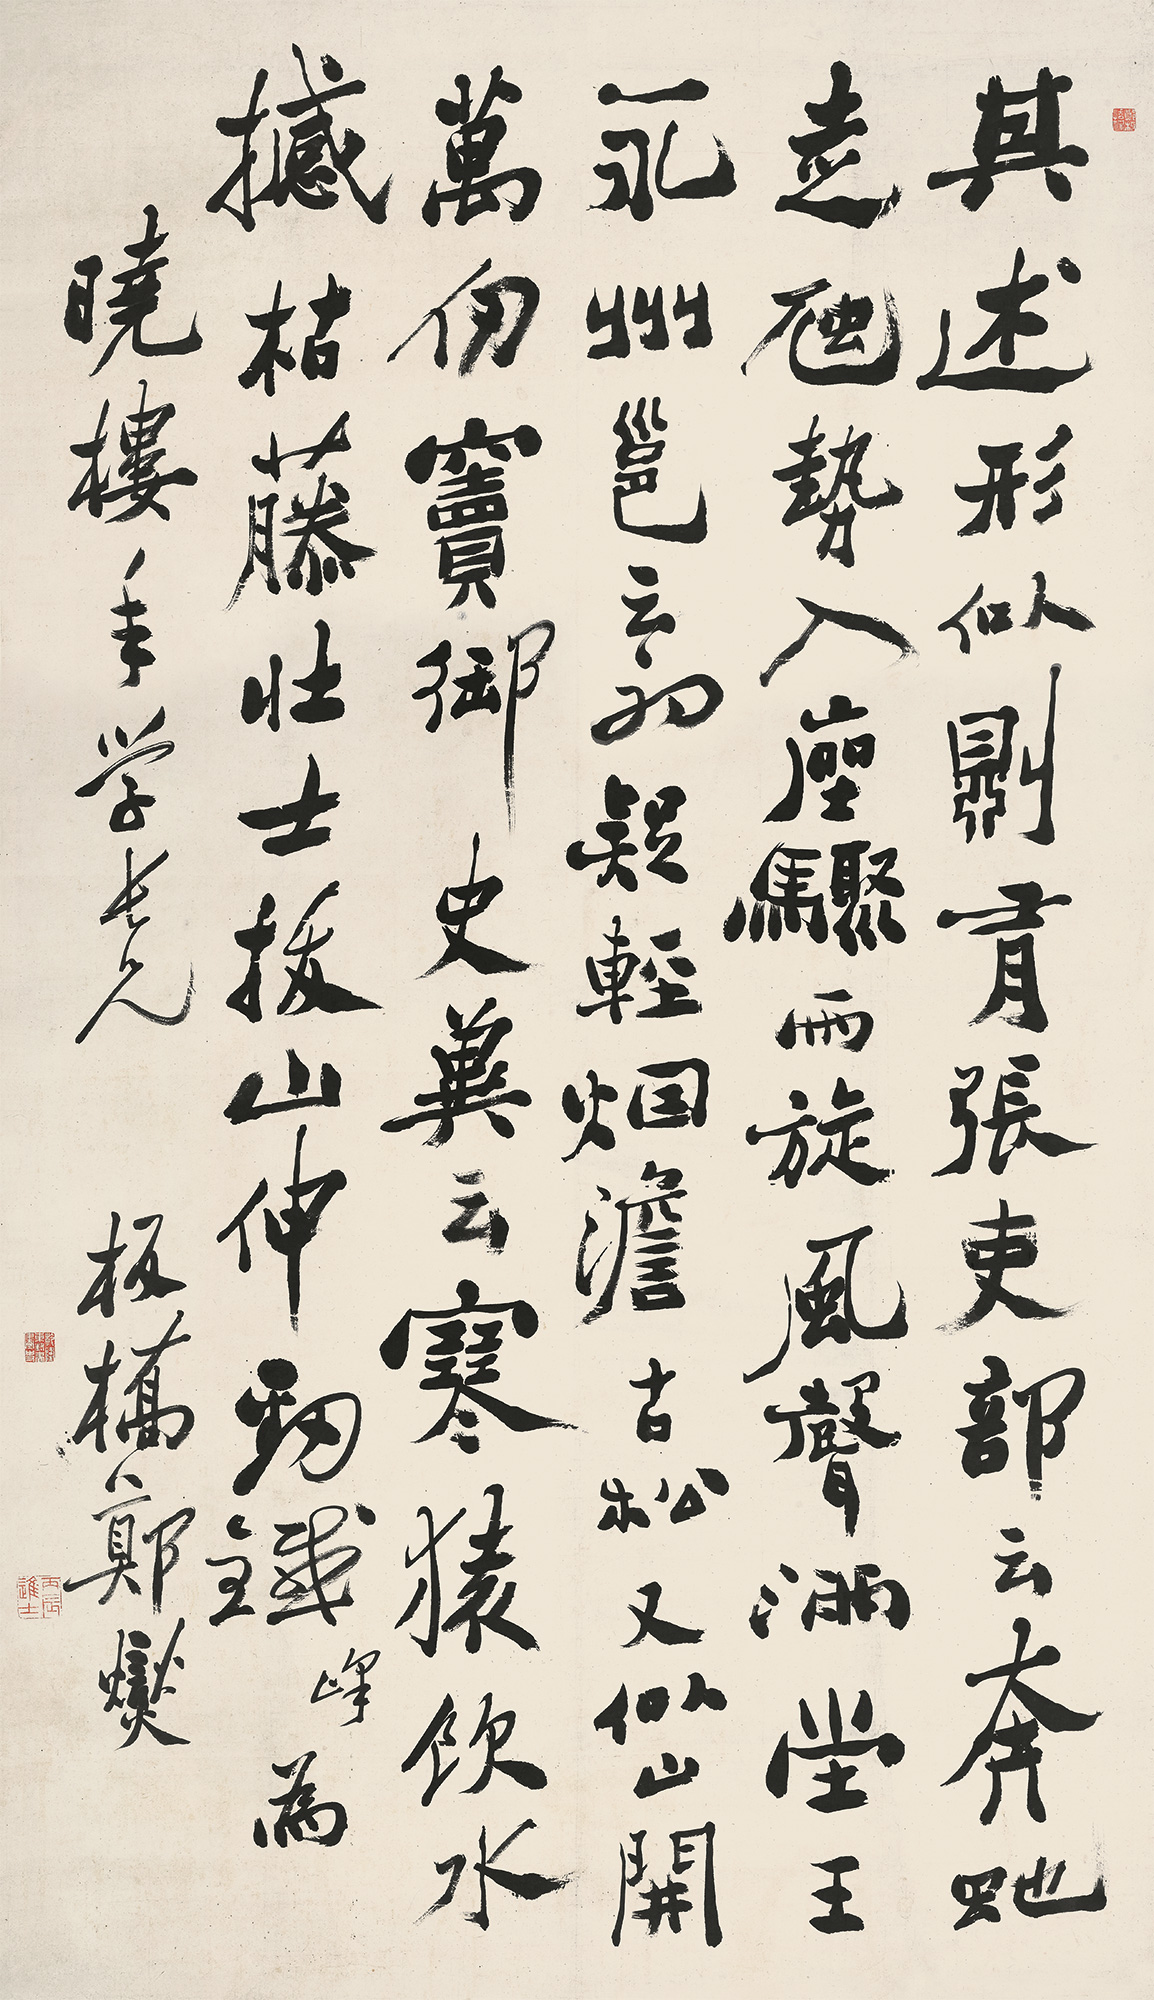 其述形似則有張吏部云奔虵
走虺勢入座驟雨旋風聲滿堂王
永州邕云初疑輕烟澹古松又似山開
萬仞竇御史冀云寒猿飲水
撼枯藤壯士拔山伸勁鐵峰為
曉樓年學長兄 板橋鄭燮
丙辰進士